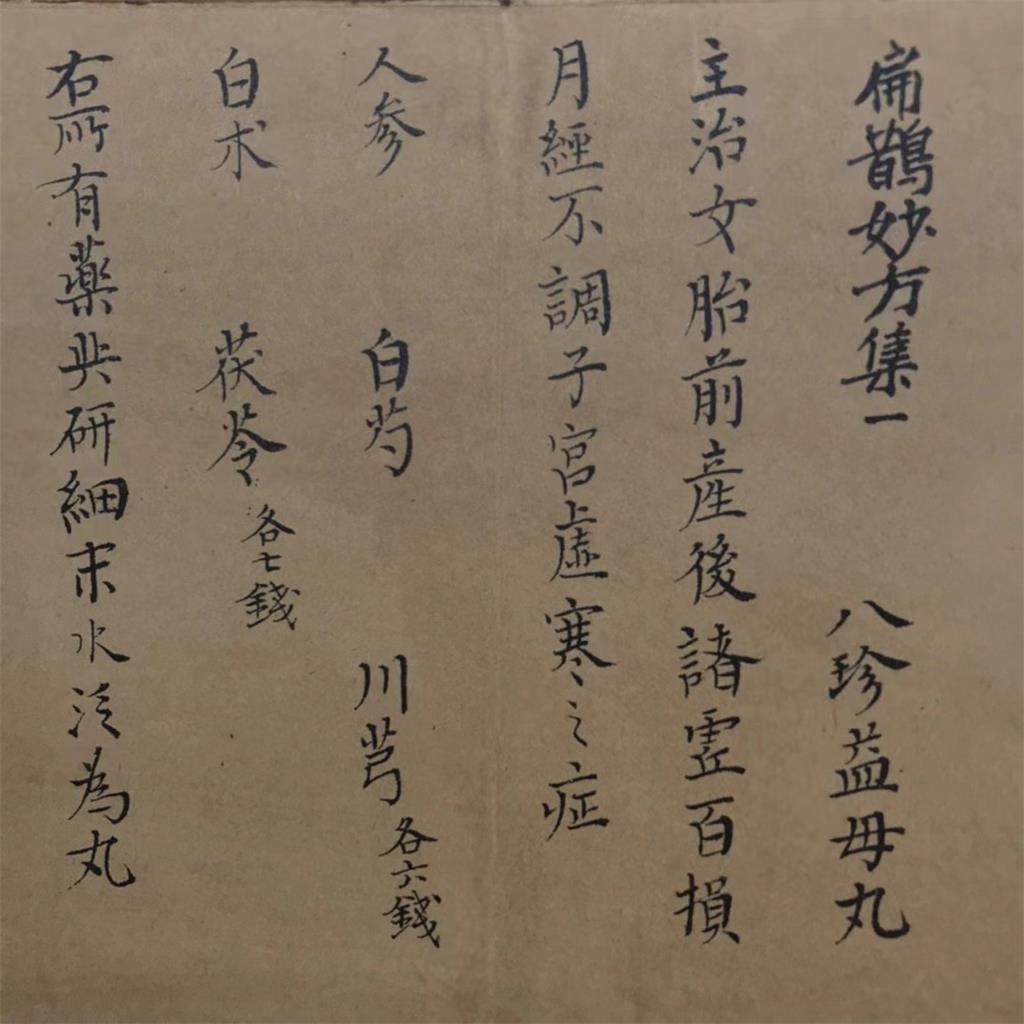 扁鵲妙方集一 八珍益母丸
主治女胎前産後諸虛百損
月經不調子宮虛寒之症
人参 白芍 川芎 各六錢
白术 茯苓 各七錢
右所有藥共研細末水泛為丸